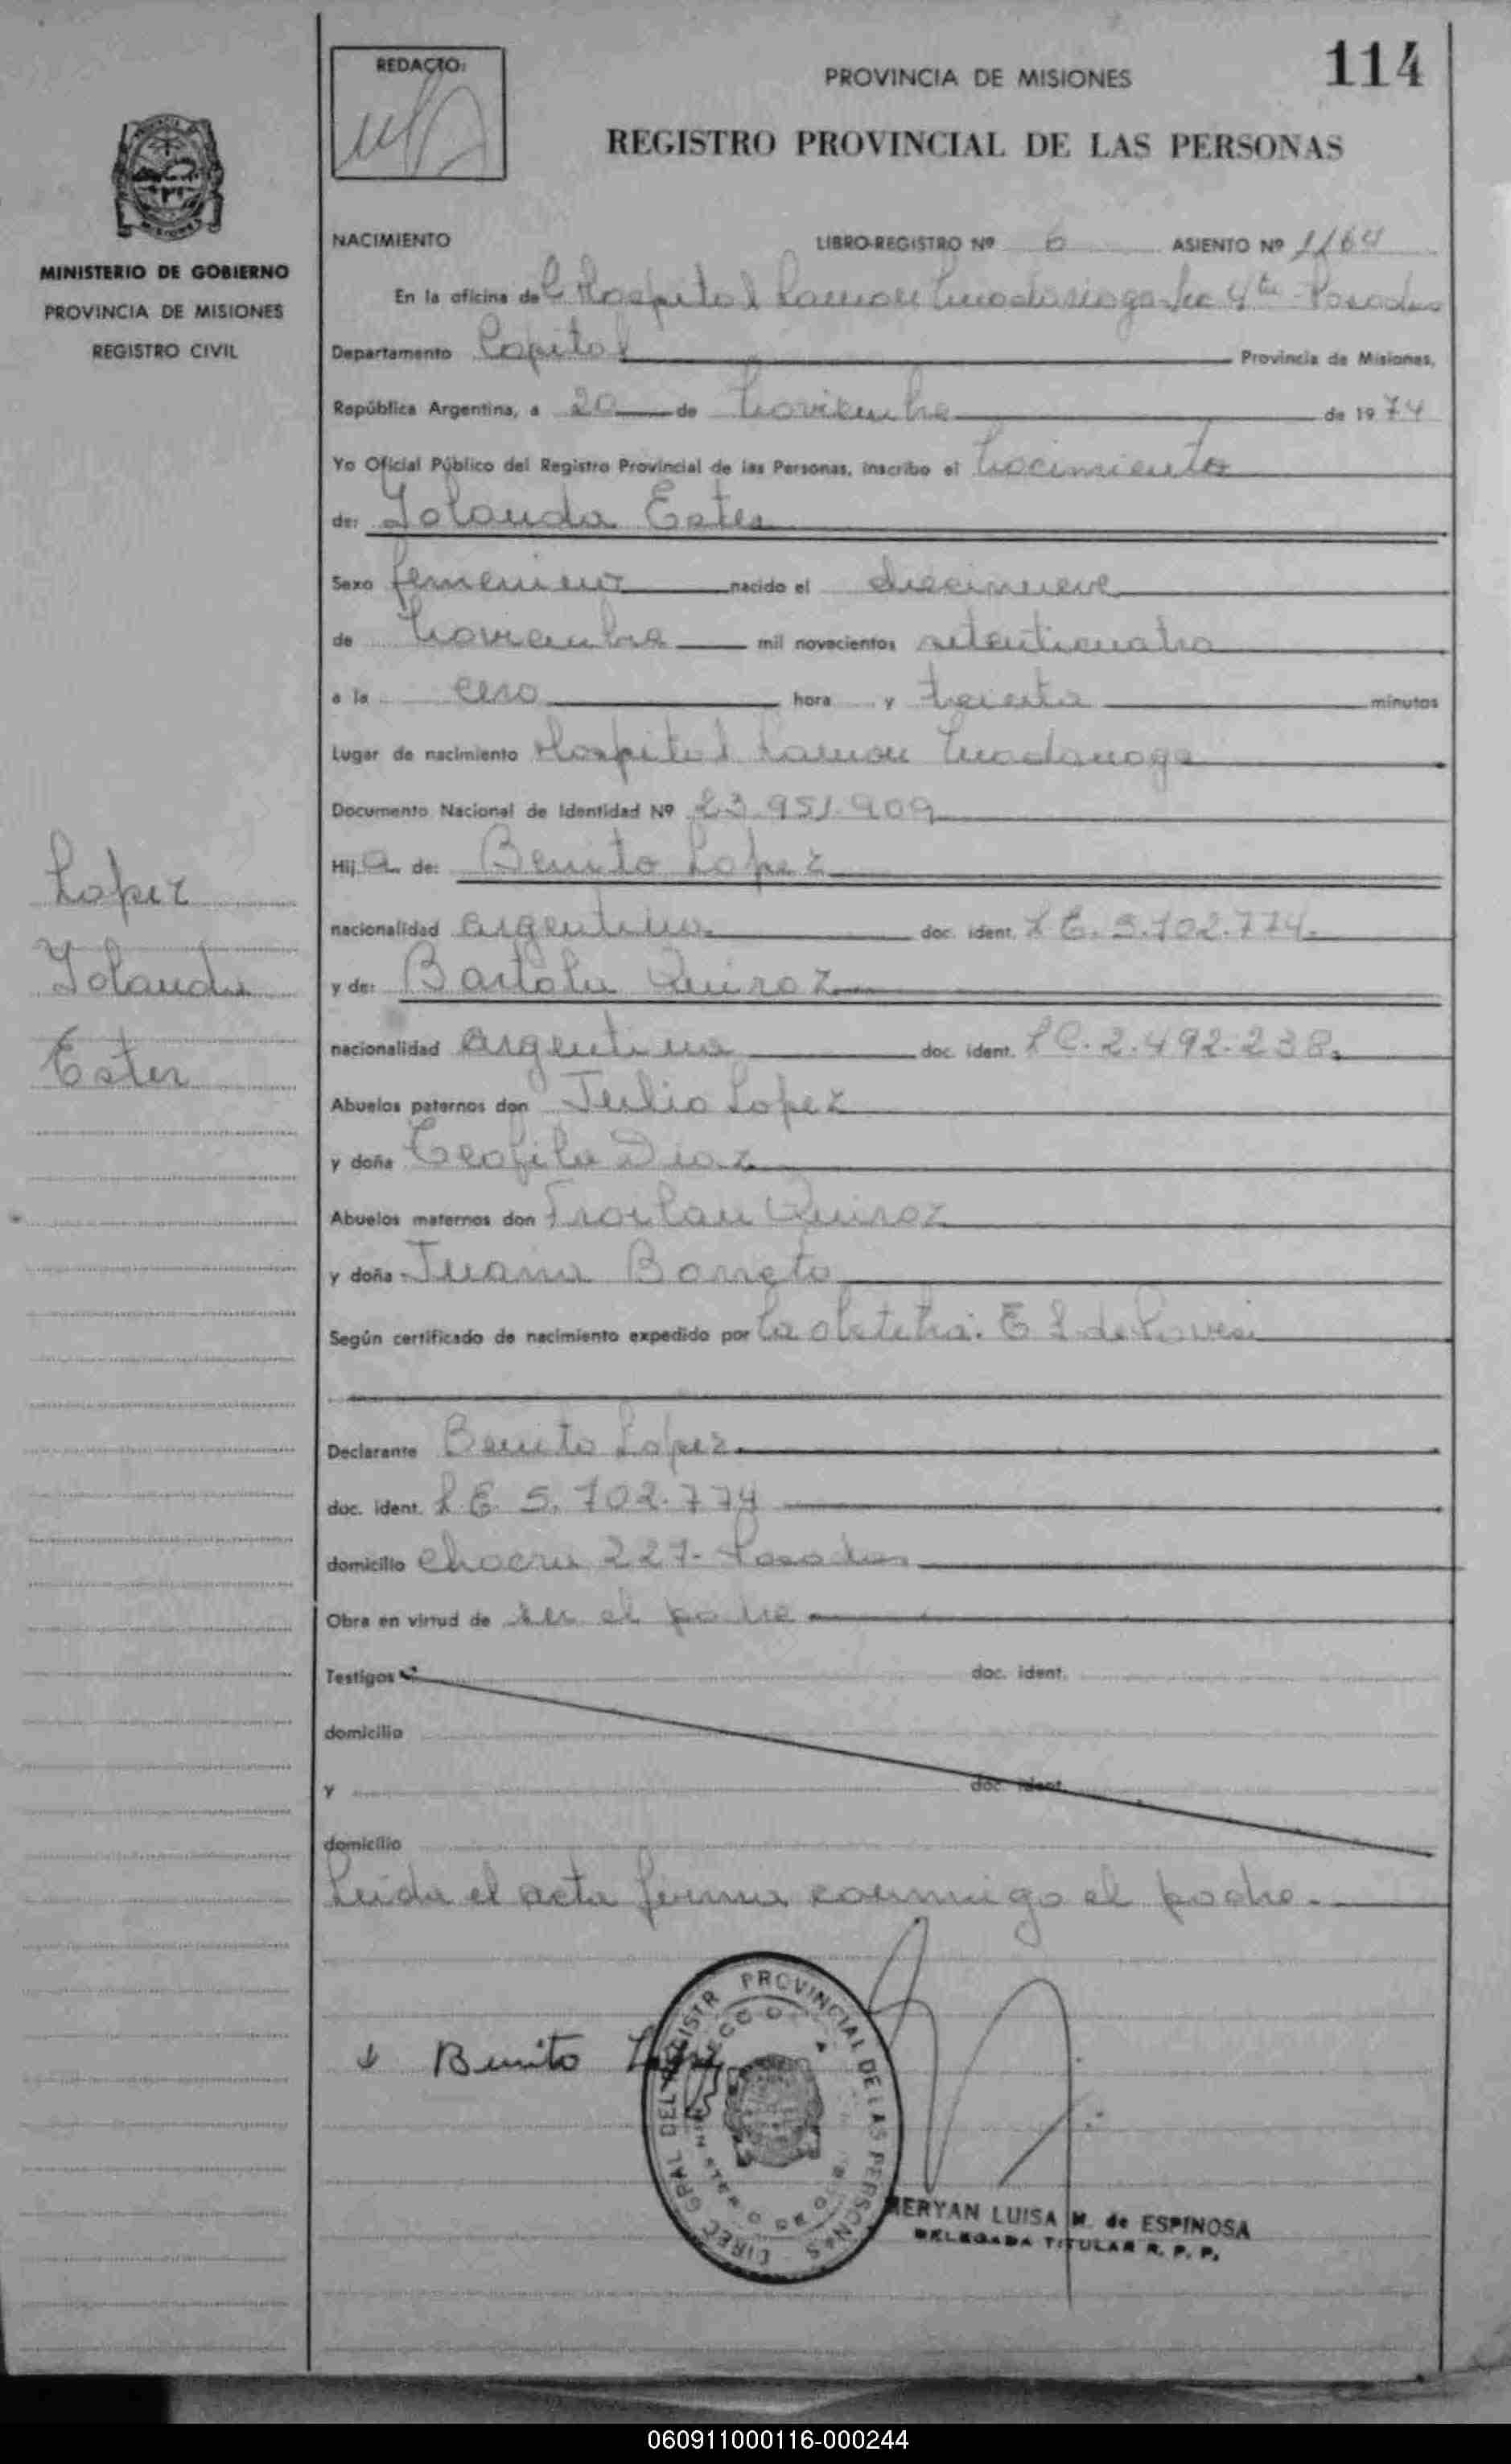 REDACTO:
PROVINCIA DE MISIONES
114
REGISTRO PROVINCIAL DE LAS PERSONAS
MINISTERIO DE GOBIERNO
PROVINCIA DE MISIONES
REGISTRO CIVIL
NACIMIENTO LIBRO-REGISTRO Nº 6 ASIENTO Nº 1164
En la oficina del Hospital Ramon Madariaga Sec 4ta Posadas
Departamento Capital Provincia de Misiones,
República Argentina, a 20 de noviembre de 1974
Yo Oficial Público del Registro Provincial de las Personas, inscribo el nacimiento
de: Yolanda Ester
Sexo femenino nacido el diecinueve
de noviembre mil novecientos setenticuatro
a la cero hora y treinta minutos
Lugar de nacimiento Hospital Ramon Madariaga
Documento Nacional de Identidad Nº 23.951.909
Hija de: Benito Lopez
nacionalidad argentino doc. ident. L E. 5.702.774.
y de: Bartola Quiroz
nacionalidad argentina doc. ident. L C. 2.492.238.
Abuelos paternos don Julio Lopez
y doña Teofila Diaz
Abuelos maternos don Froilan Quiroz
y doña Juana Barreto
Según certificado de nacimiento expedido por la obstetra: E L de
Declarante Benito Lopez.
doc. ident. L E 5.702.774
domicilio chacra 227- Posadas
Obra en virtud de ser el padre
Testigos doc. ident.
domicilio
y doc. ident.
domicilio
Leida el acta firma conmigo el padre.
Lopez
Yolanda
Ester
Benito Lopez
DIREC GRAL DEL REGISTR PROVINCIAL DE LAS PERSONAS
MERYAN LUISA M. de ESPINOSA
DELEGADA TITULAR R. P. P.
060911000116-000244